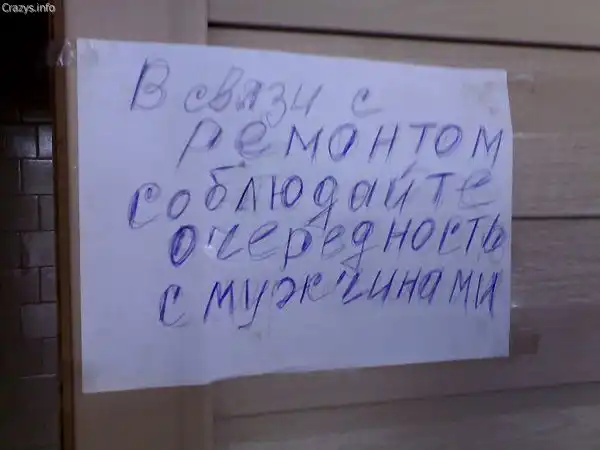 Crazys.info
В связи с
ремонтом
соблюдайте
очередность
с мужчинами